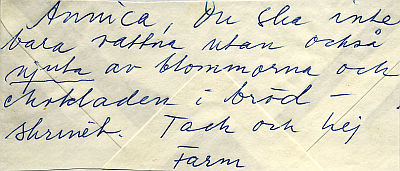 Annica, Du ska inte
bara vattna utan också
njuta av blommorna och
chokladen i bröd-
skrinet. Tack och hej
Farm